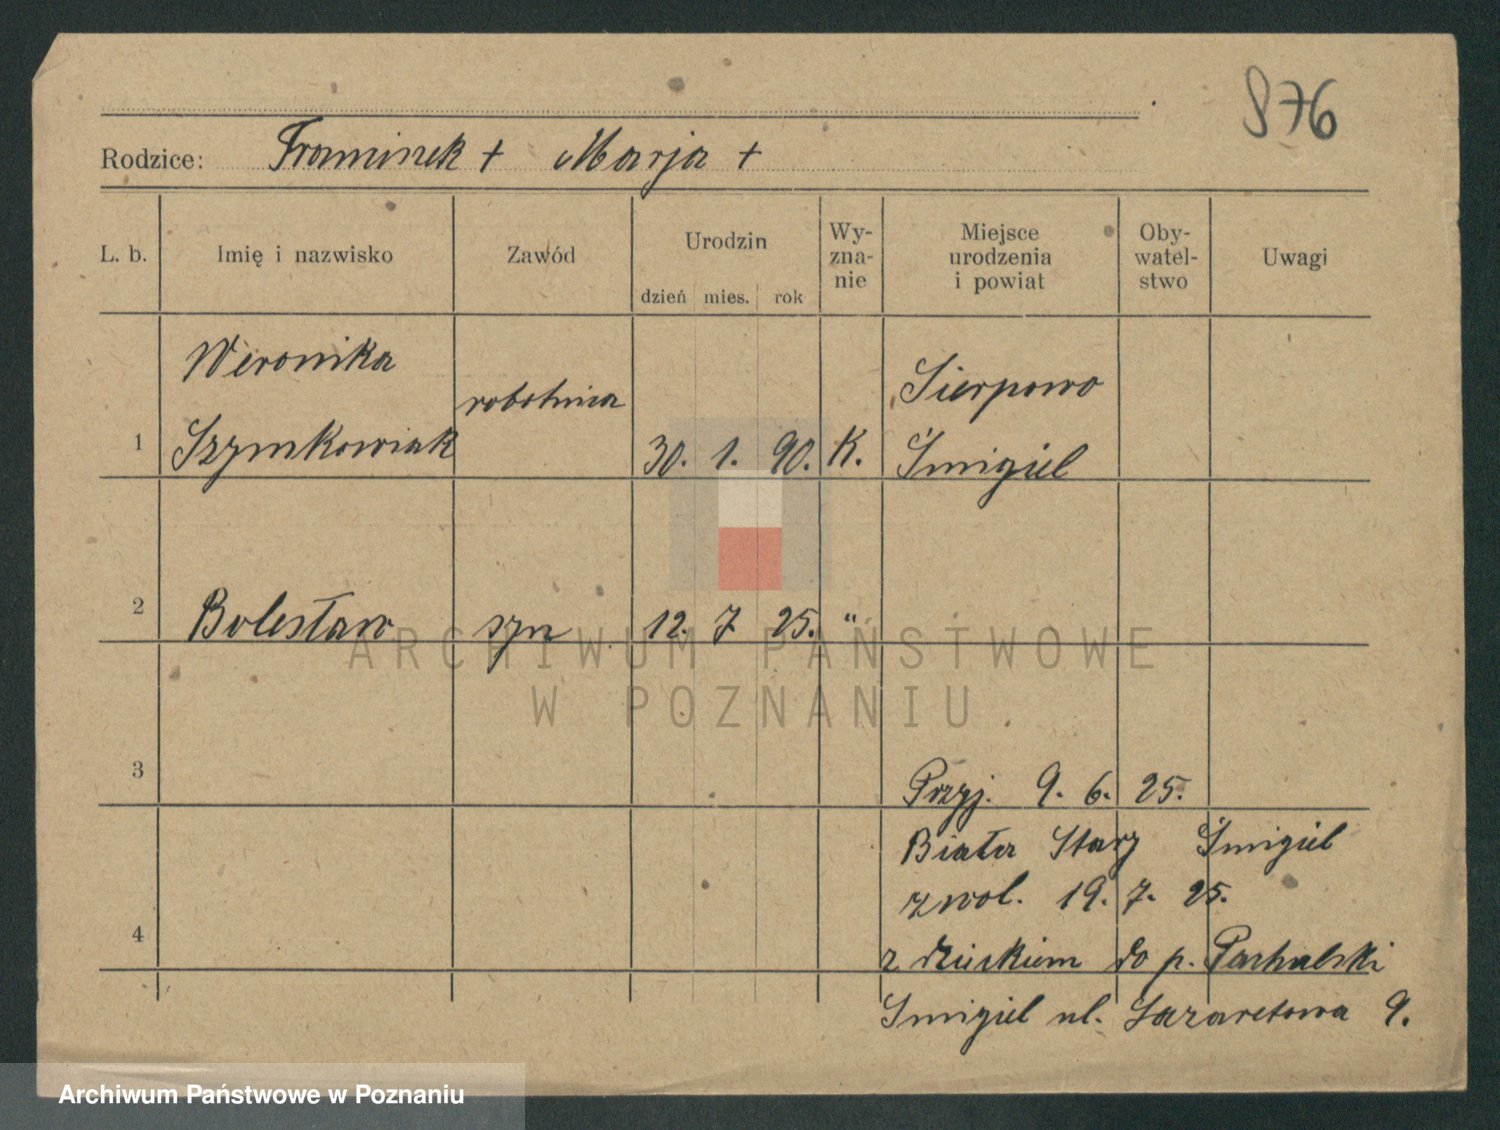 876
Rodzice: Franciszek + Marja +
L. b. Imię i nazwisko Zawód Urodzin dzień mies. rok Wy-zna-nie Miejsce urodzenia i powiat Oby-watel-stwo Uwagi
Weronika Sierpowo
robotnica
1 Szymkowiak 30. 1. 90. K. Śmigiel
2 Bolesław syn 12. 7. 25. "
ARCHIWUM PAŃSTWOWE
W POZNANIU
3 Przyj. 9. 6. 25.
Biała Stary Śmigiel
zwol. 19. 7. 25.
4 z dzieckiem do p.
Śmigiel ul. Lazaretowa 9.
Archiwum Państwowe w Poznaniu